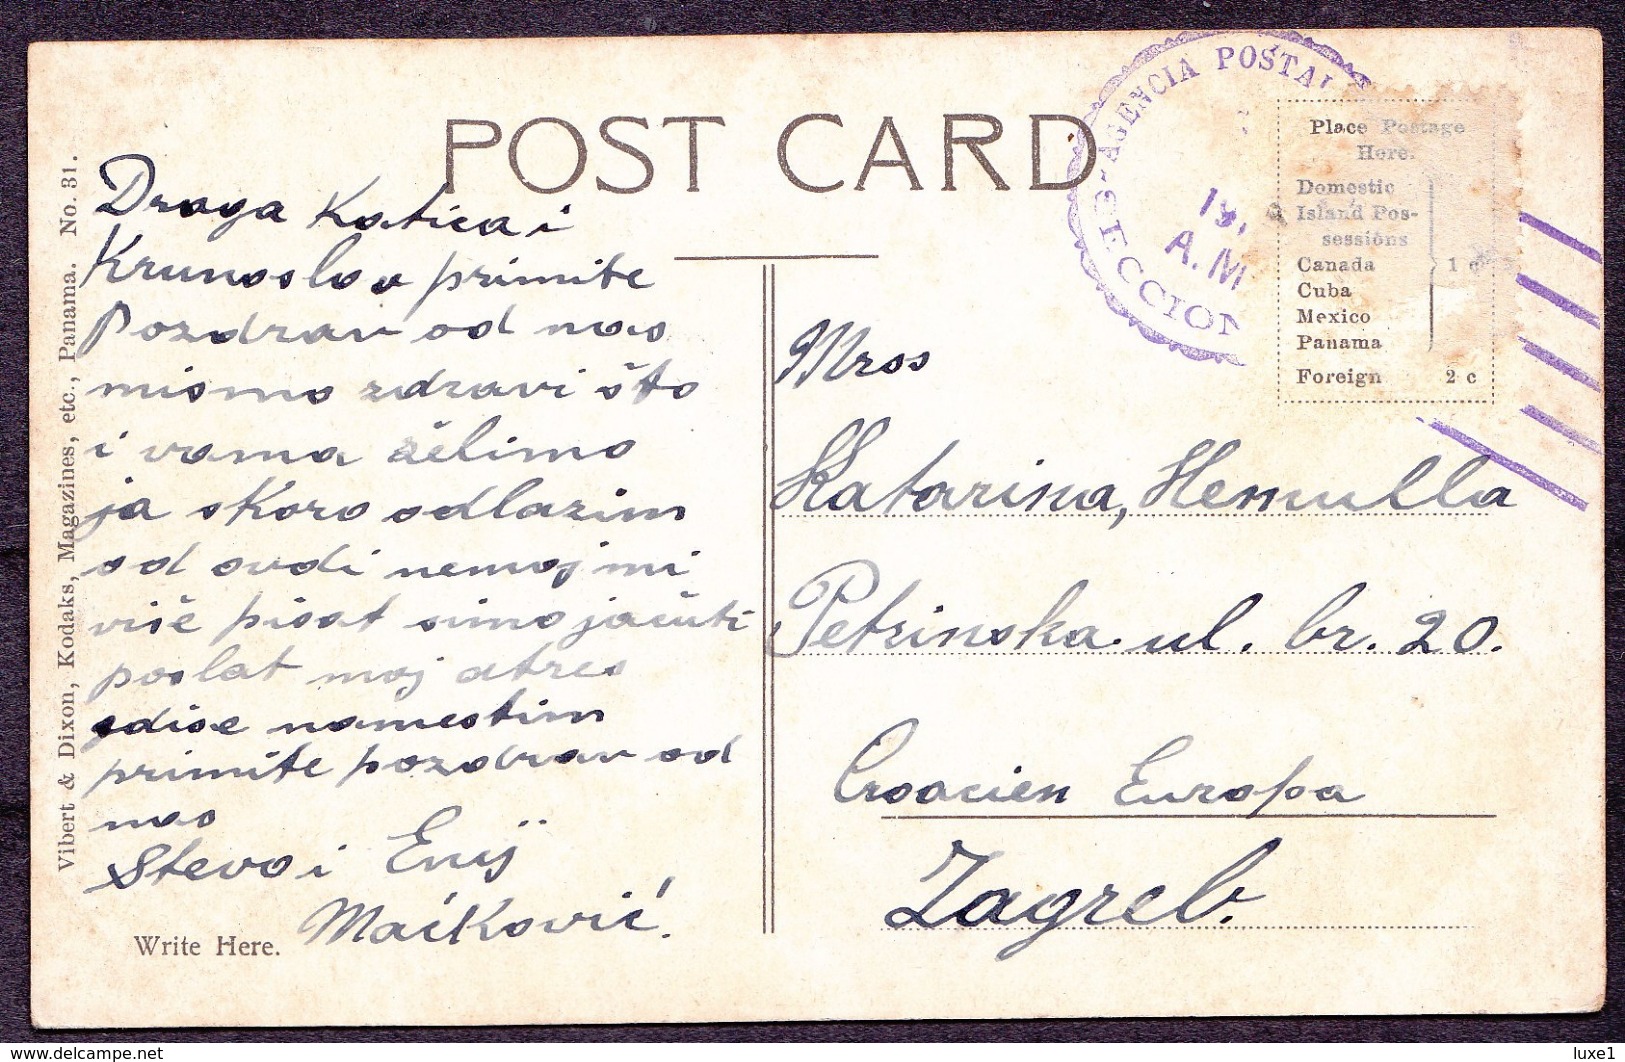 POST CARD
Vibert & Dixon, Kodaks, Magazines, etc., Panama. No. 31.
Draga Katica i
Krunoslav primite
Pozdrav od nas
mismo zdravi što
i vama želimo
ja skoro odlazim
od ovdi nemoj mi
više pisat simo jaćuti
poslat moj atres
gdise namestim
primite pozdrav od
nas
Stevo i Enij
Maćković.
Write Here.
AGENCIA POSTAL
19,
A.M
ECCION
Place Postage
Here.
Domestic
Island Pos-
sessions
Canada
Cuba
Mexico
Panama
1 c
Foreign 2 c
Mrss
Katarina, Hemulla
Petrinska ul. br. 20.
Croacien Europa
Zagreb.
delcampe.net
luxe1